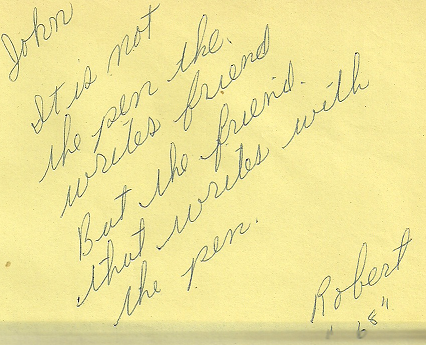 John
It is not
the pen the
writes friend
But the friend.
that writes with
the pen.
Robert
"68"